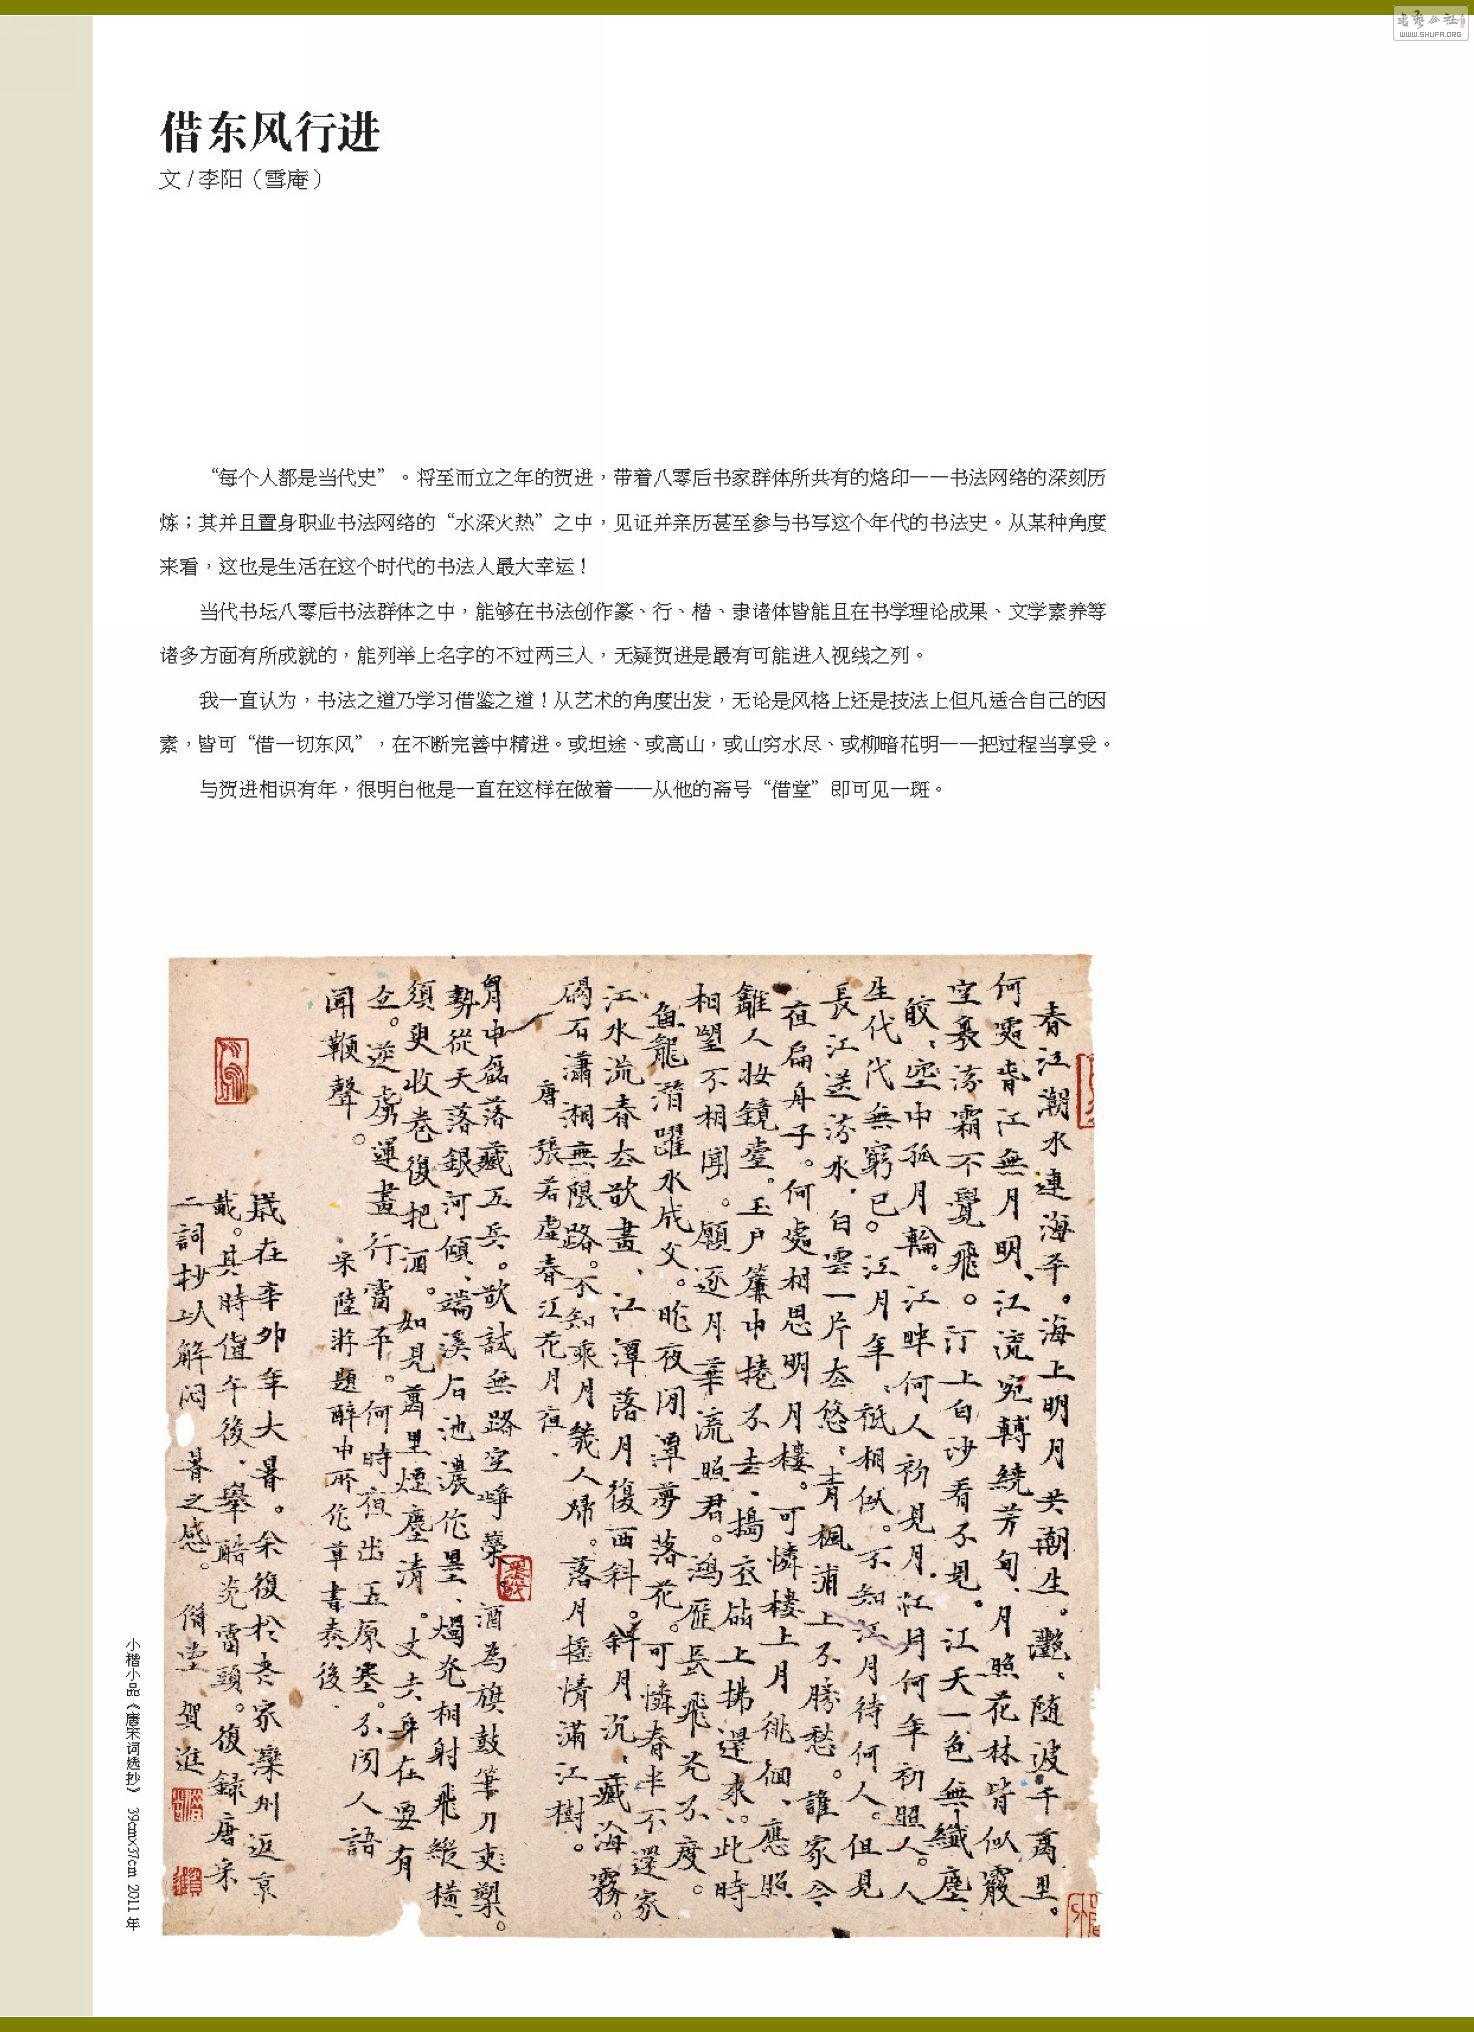 借东风行进
文 / 李阳（雪庵）
“每个人都是当代史”。将至而立之年的贺进，带着八零后书家群体所共有的烙印——书法网络的深刻历
炼；其并且置身职业书法网络的“水深火热”之中，见证并亲历甚至参与书写这个年代的书法史。从某种角度
来看，这也是生活在这个时代的书法人最大幸运！
当代书坛八零后书法群体之中，能够在书法创作篆、行、楷、隶诸体皆能且在书学理论成果、文学素养等
诸多方面有所成就的，能列举上名字的不过两三人，无疑贺进是最有可能进入视线之列。
我一直认为，书法之道乃学习借鉴之道！从艺术的角度出发，无论是风格上还是技法上但凡适合自己的因
素，皆可“借一切东风”，在不断完善中精进。或坦途、或高山，或山穷水尽、或柳暗花明——把过程当享受。
与贺进相识有年，很明白他是一直在这样在做着——从他的斋号“借堂”即可见一斑。
春江潮水連海平。海上明月共潮生。灩、随波千萬里。
何處春江無月明、江流宛轉繞芳甸、月照花林皆似霰
空裏流霜不覺飛。汀上白沙看不見。江天一色無纖塵、
皎、空中孤月輪。江畔何人初見月、江月何年初照人。人
生代代無窮已。江月年、祗相似。不知江月待何人。但見
長江送流水、白雲一片去悠、青楓浦上不勝愁。誰家今
夜扁舟子。何處相思明月樓。可憐樓上月徘徊、應照
離人妝鏡臺。玉户簾中捲不去、搗衣砧上拂還来。此時
相望不相聞。願逐月華流照君。鴻雁長飛光不度。
魚龍潛躍水成文。昨夜閒潭夢落花。可憐春半不還家
江水流春去欲盡、江潭落月復西斜。斜月沉、藏海霧。
碣石瀟湘無限路。不知乘月幾人歸。落月摇情滿江樹。
唐張若虚春江花月夜、
胷中磊落藏五兵。欲試無路空崢嶸。酒為旗鼓筆刀槊。
勢從天落銀河傾、端溪石池濃作墨、燭光相射飛縱橫、
須臾收卷復把酒。如見萬里煙塵清。丈夫身在要有
立。逆虜運盡行當平。何時夜出五原塞。不闻人語
聞鞭聲。
宋陸游題醉中所作草書卷後
歲在辛卯年大暑。余復於老家灤州返京
其時值午後、舉酷炎當頭。復録唐宋
二詞抄以解悶暑之感。借堂 賀進
小楷小品《唐宋词选抄》 39cm×37cm 2011 年
WWW.SHUFA.ORG